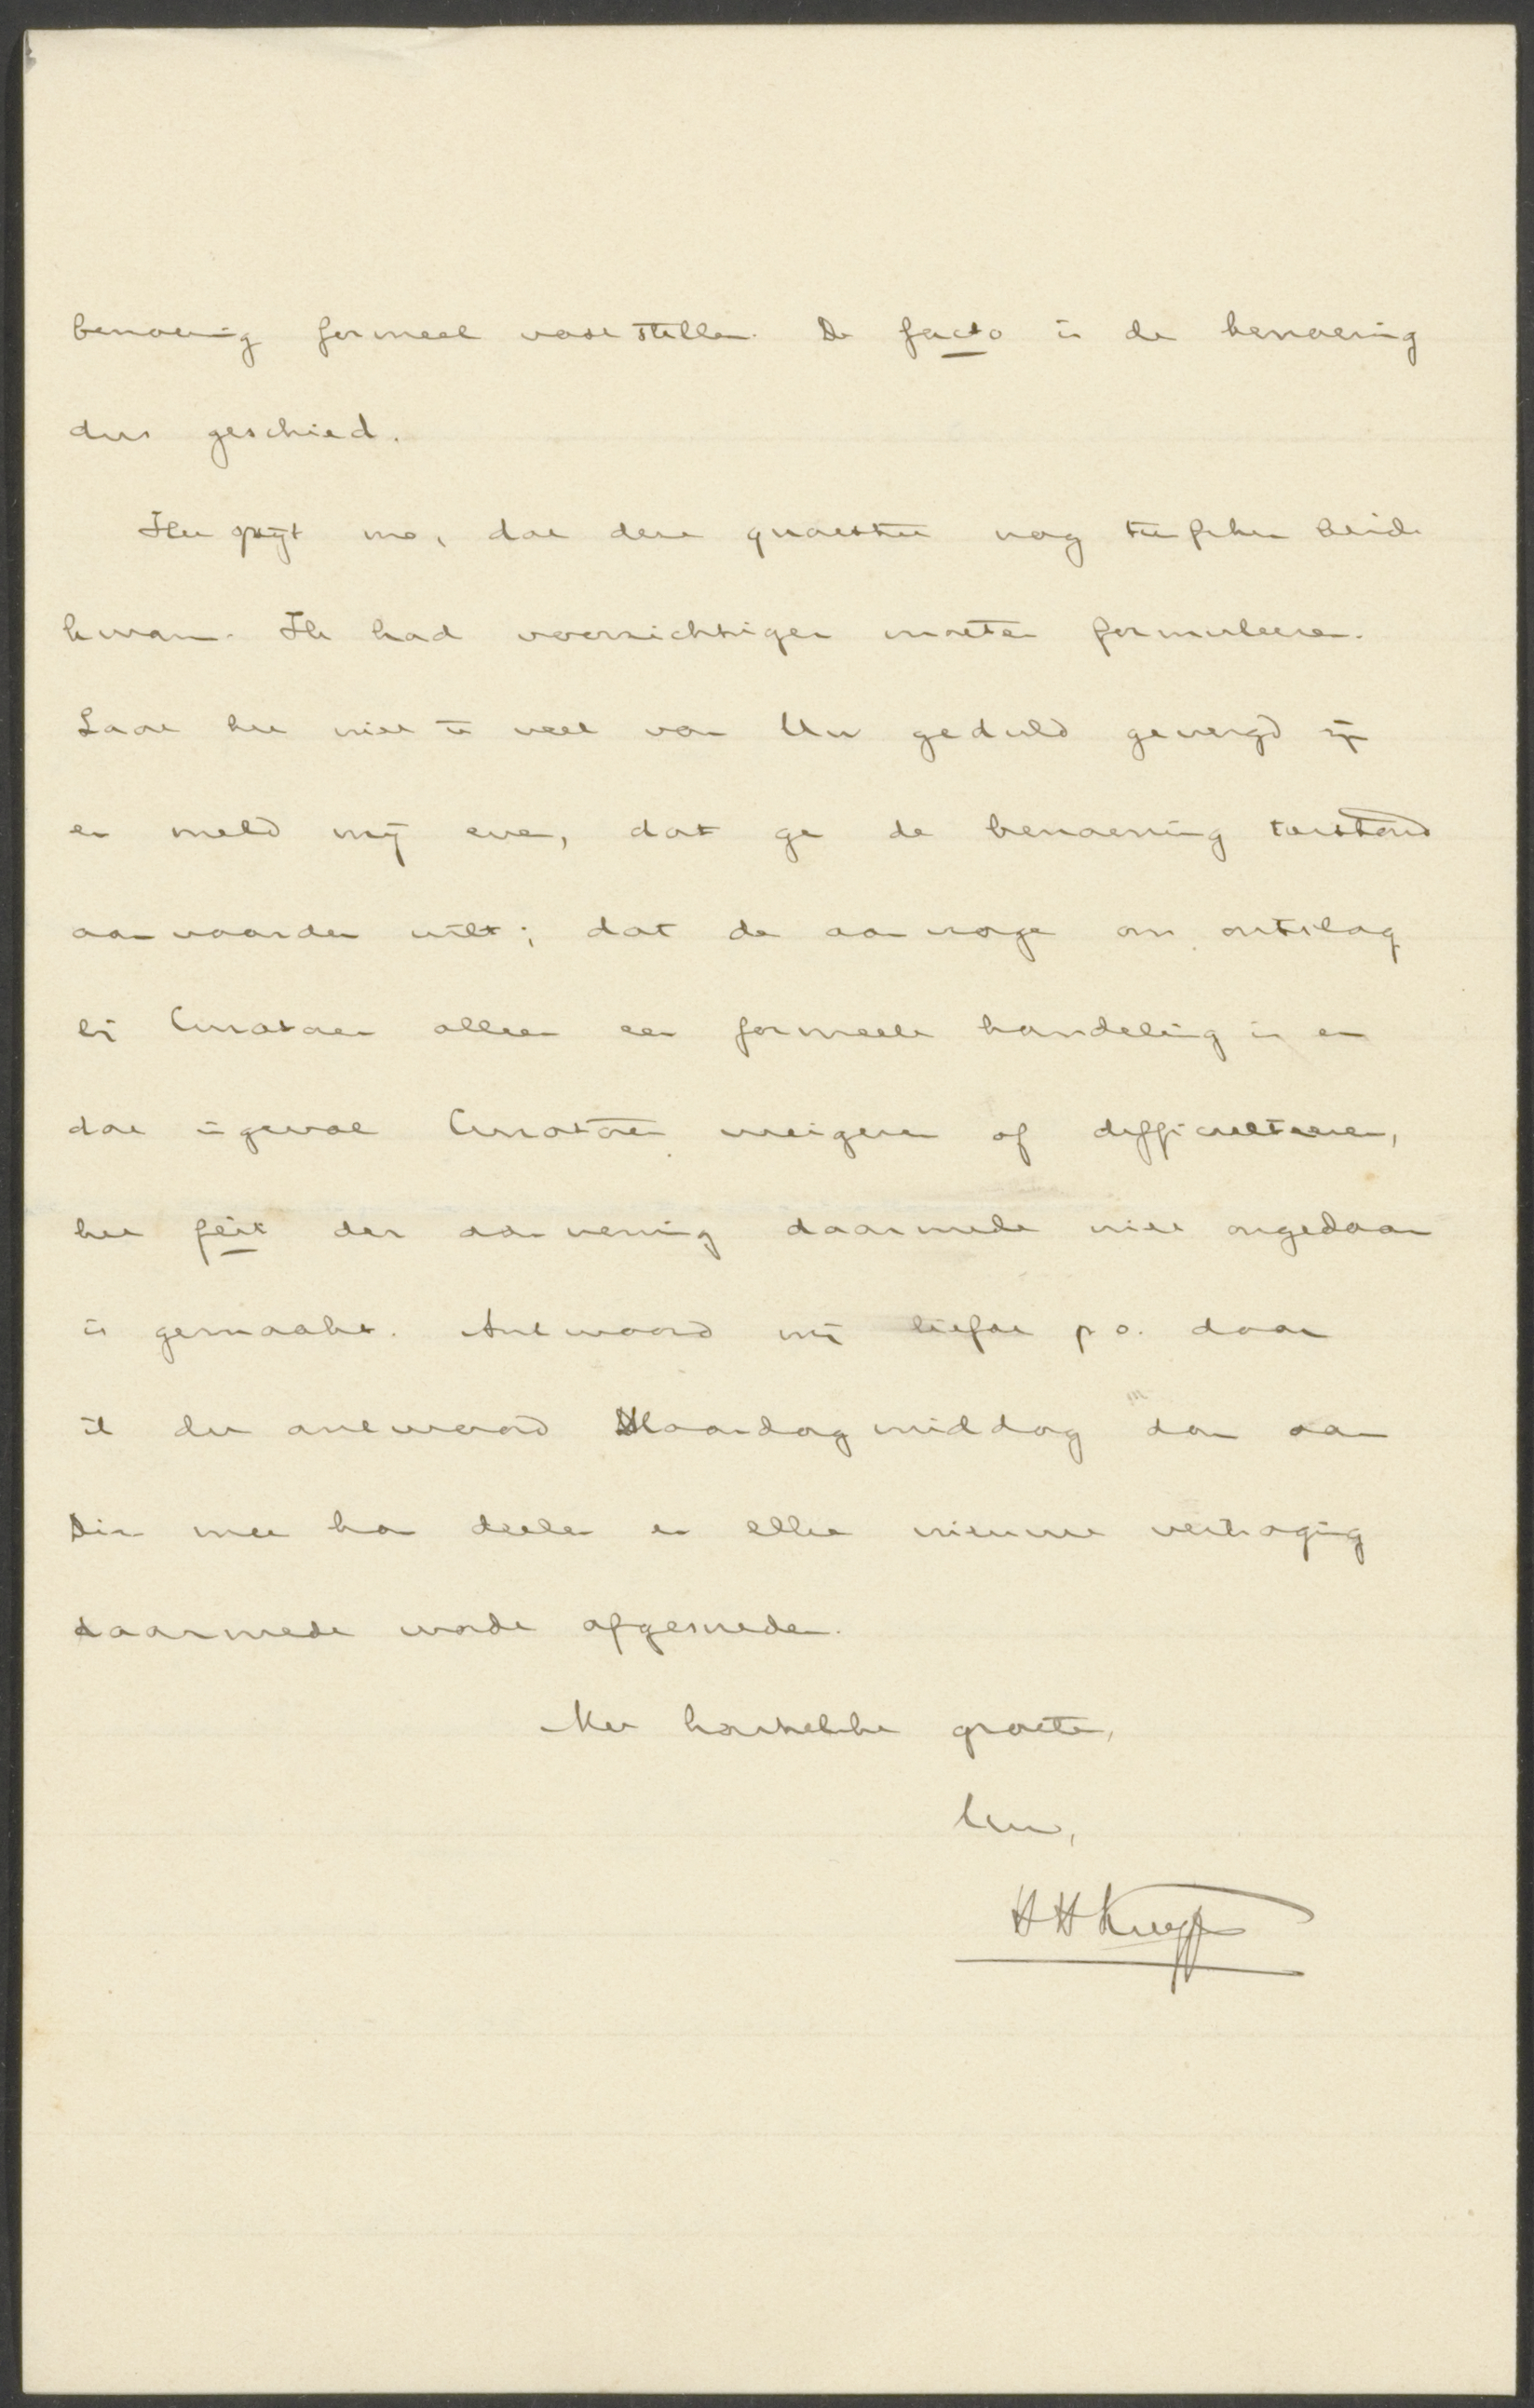 benoeming formeel vast stellen. De facto is de benoeming
dus geschied.
Het spijt me, dat deze quaestie nog tusschen beide
kwam. Ik had voorzichtiger moeten formuleeren.
Laat het niet te veel van Uw geduld gevergd zijn
en meld mij even, dat ge de benoeming
aanvaarden wilt; dat de aanvrage om ontslag
bij Curatoren alleen een formeele handeling is en
dat ingeval Curatoren weigeren of difficulteeren,
het feit der aanneming daarmede niet ongedaan
is gemaakt. Antwoord mij liefst p.o. daar
ik dit antwoord Maandagmiddag dan aan
Dir. mee kan deelen en elke nieuwe vertraging
daarmede worde afgesneden.
Met hartelijke groeten,
Uw,
HHKuyper